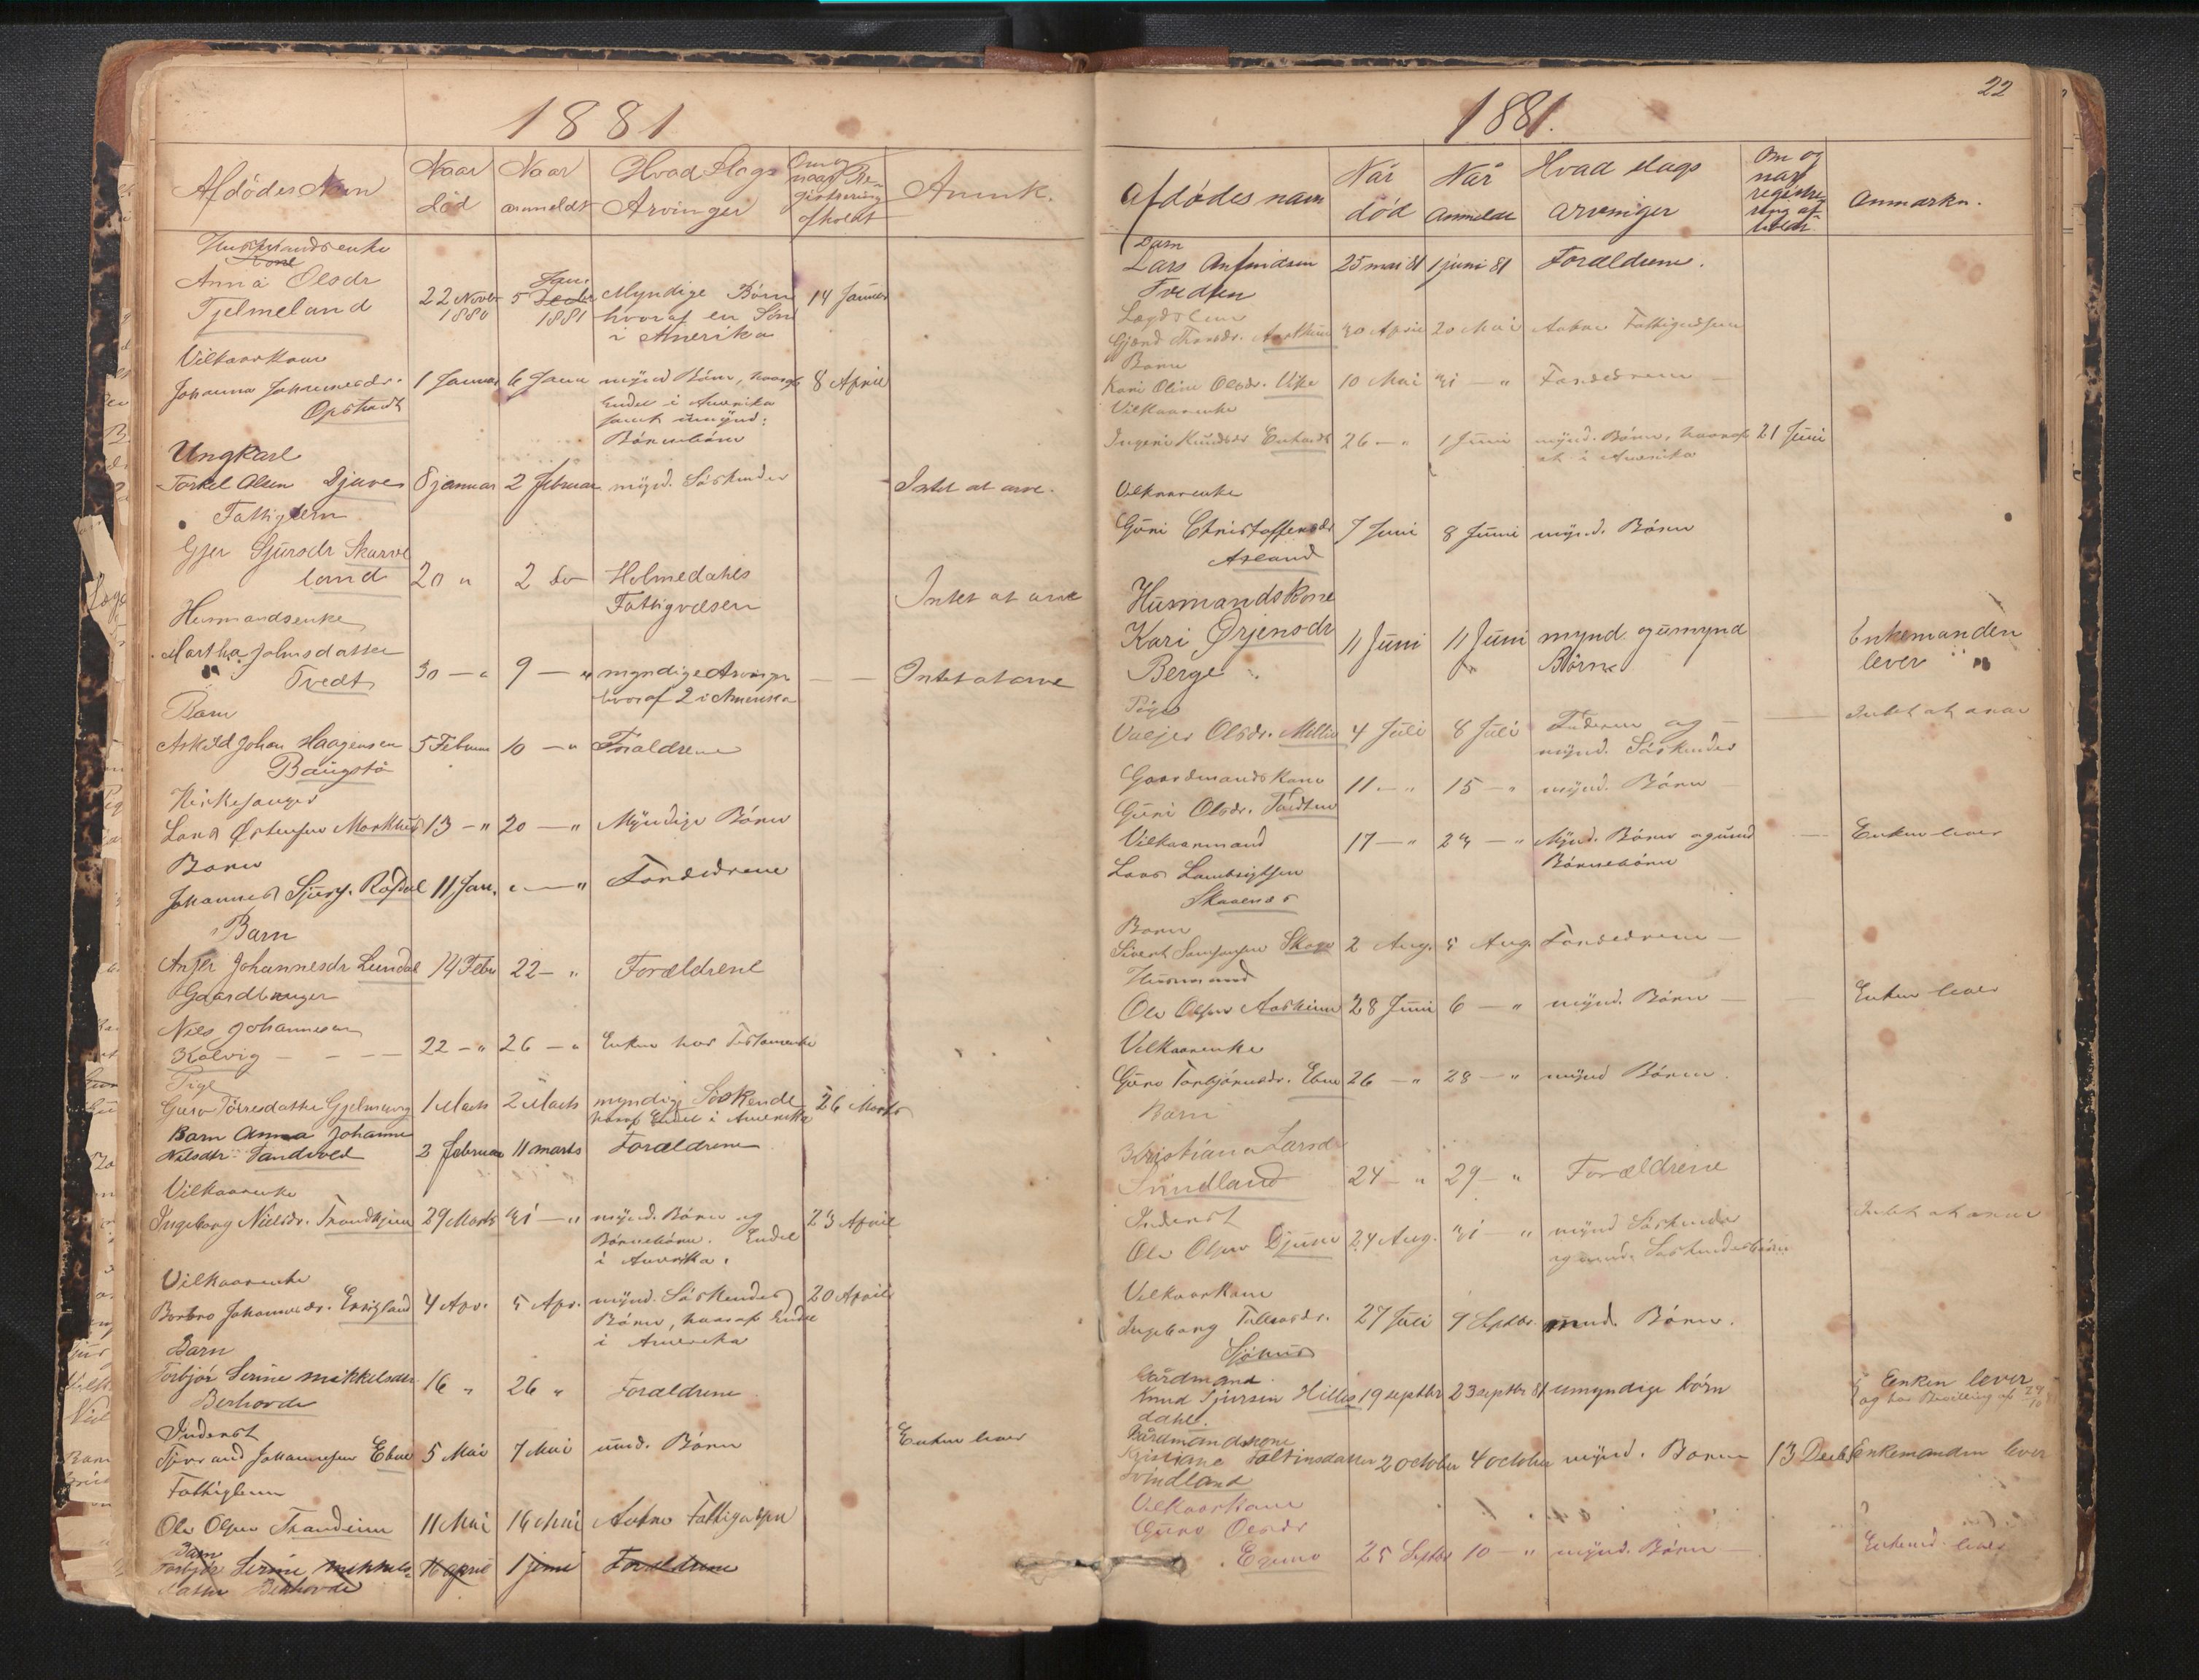 1881
Afdödes Navn
Naar död
Naar anmeldt
Hvad Slags Arvinger
Om og naar Registrering afholdt
Anmk.
Husmandsenke
Kone
Anna Olsdr
Tjelmeland
22 Novbr 1880
5 Janr. 1881
Myndige Börn
hvoraf en Sön
i Amerika
14 Januar
Vilkaarskone
Johanna Johannesdr.
Opstvedt
1 Januar
6 Janr
mynd Börn, hvoraf
Endel i Amerika
samt umynd:
Börnebörn
8 April
Ungkarl
Torkel Olsen Djuve
8 januar
2 februar
mynd. Söskender
Intet at arve.
Fattiglem
Gjer Sjursdr Skarve
land
20 "
2 do
Holmedahls
Fattigvæsen
Intet at arve
Husmandsenke
Martha Johnsdatter
Tvedt
30 — "
9 — "
myndige Arvinger
hvoraf 2 i Amerika
Intet at arve
Barn
Askild Johan Haagensen
Baugstö
5 Februar
10 — "
Foraldrene
Kirkesanger
Lars Östensen Markhus
13 — "
20 — "
Myndige Börn
Barn
Johannes Sjurs. Rafdal
11 Jan.
" — "
Forældrene
Barn
Johannesdr Lundal
14 Febr
22 — "
Forældrene
Gaardbruger
Nils Johannesen
Kalvig
22 — "
26 — "
Enken har Testamente
Pige
Guro Törresdatter Gjelmervig
1 Marts
2 Marts
myndige Söskende
hvoraf Endel i Amerikka
26 Marts
Barn Anna Johanne
Nilsdtr Sandvold
2 februar
11 marts
Forældrene
Vilkaarsenke
Ingeborg Nilsdr. Trondheim
29 Marts
31 — "
mynd. Börn og
Börnebörn. Endel
i Amerika.
23 April
Vilkaarsenke
Barbro Johannesdr. Ersigland
4 Apr.
5 Apr.
mynd. Söskendes
Börn, hvoraf Endel
i Amerika
20 April
Barn
Torbjör Serine Mikkelsdtr
Berhovde
16 "
26 "
Forældrene
Inderst
Johannesen Ebne
5 Mai
7 Mai
umd. Börn
Enken lever
Fattiglem
Ole Olsen Trandeim
11 Mai
14 Mai
Aakre Fattigvæsen
Barn
Torbjör Serine Mikkels-
datter Berhovde
16 april
1 juni
Forældrene
22
1881.
Afdödes navn
Når död
Når Anmeldt
Hvad slags arvinger
Om og når registrering afholdt
Anmærkn.
Barn
Lars Anfindsen
Tvedten
25 mai 81
1 juni 81
Forældrene.
Lægdslem
30 April
20 Mai
Aakre Fattigvæsen
Barn
Kari Oline Olsdr. Vike
10 Mai
31 — "
Forældrene
Vilkaarsenke
Ingeri Knudsdr
26 — "
1 Juni
mynd. Börn, hvoraf
et i Amerika
21 Juni
Vilkaarsenke
Guri Christoffersdr
Axland
7 Juni
8 Juni
mynd. Börn
Husmandskone
Kari Örjensdr
Berge
11 Juni
11 Juni
mynd og umynd
Börn
Enkemanden
lever
Pige
Olsdr. Milliv
4 Juli
8 Juli
Faderen og
mynd. Söskender
Intet at arve
Gaardmandskone
Guri Olsdr. Tvedten
11 — "
15 — "
mynd. Börn
Vilkaarsmand
Lars Lambrigtsen
Skaanes
17 — "
23 — "
Mynd. Börn og umd
Börnebörn
Enken lever
Barn
Sivert Samsonsen Skage
2 Aug.
5 Aug.
Forældrene
Husmand
Ole Olsen Aarheim
28 Juni
6 — "
mynd. Börn
Enken lever
Vilkaarsenke
Guro Torbjörnsdr. Ebne
26 — "
28 — "
mynd Börn.
Barn
Kristiana Larsdr
Svindland
24 — "
29 — "
Forældrene
Inderst
Ole Olsen Djuve
24 Aug.
31 — "
mynd Söskender
og umd. Söskendesbörn
Intet at arve
Vilkaarskone
Ingeborg Tollevsdr.
27 Juli
9 Septbr.
mnd. Börn.
Gårdmand
Knud Sjursen Hilles
dahl.
19 septbr
23 septbr 81
umyndige börn
Enken lever
og har Bevilling af
Gårdmandskone
Kristiane Valtinsdatter
Svindland
2 october
4 october
mynd. Börn
13 Decbr
Enkemanden lever
Vilkaarskone
Guro Olsdr
25 Septbr
10 — "
mynd. Börn
Enkemd. lever